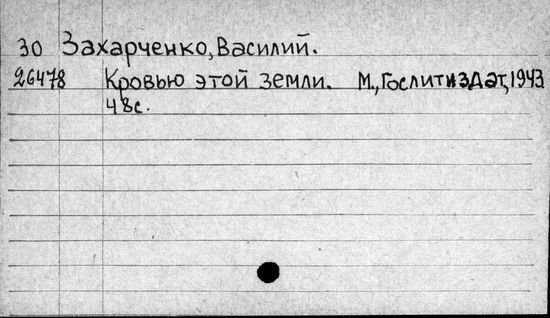 30 Захарченко, Василий.
26478 Кровью этой земли. М., Гослитиздат, 1943.
48с.